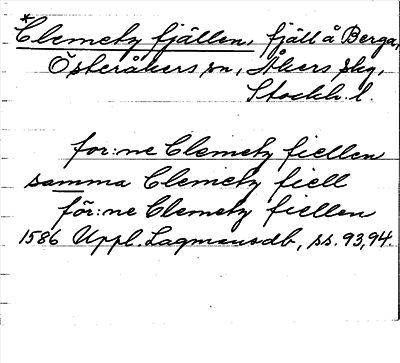 *Clemetz fjällen, fjäll å Berga,
Österåkers sn, Åkers skg,
Stockh. l.
for:ne Clemetz fiellen
samma Clemetz fiell
för:ne Clemetz fiellen
1586 Uppl. Lagmansdb, ss. 93,94.